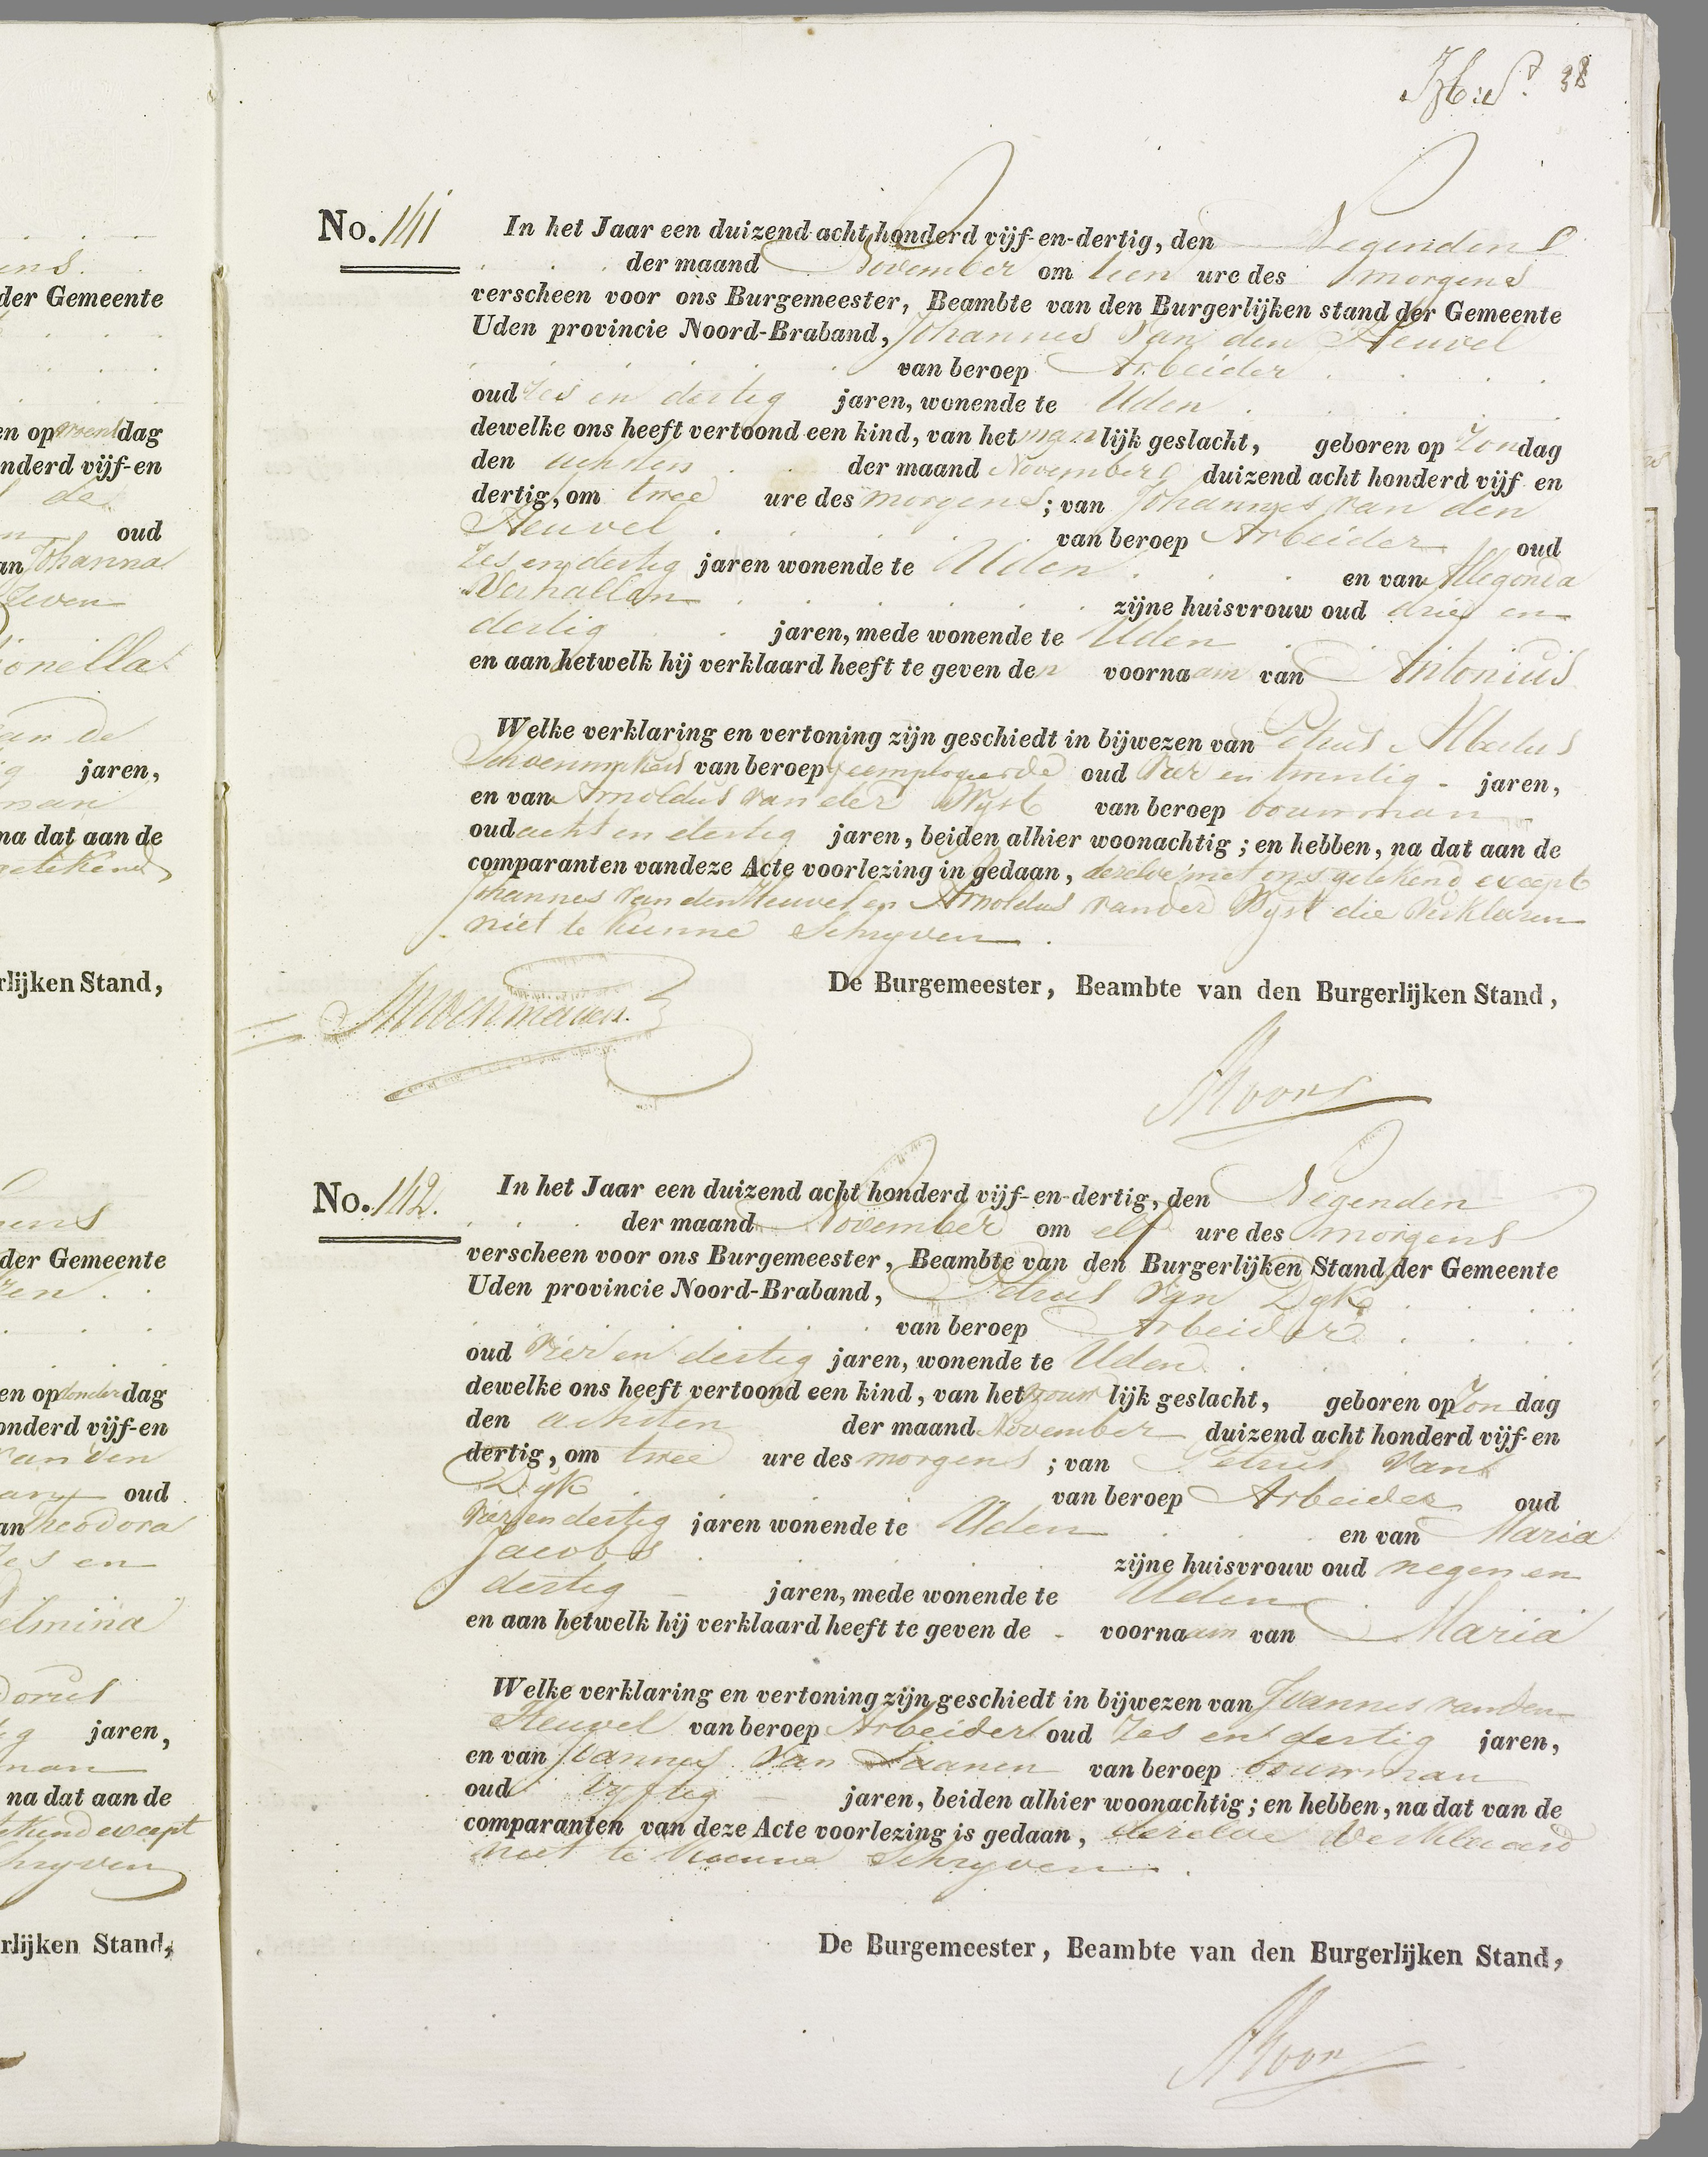 38
No. 141 In het Jaar een duizend acht honderd vijf-en-dertig, den Negenden
der maand November om tien ure des morgens
verscheen voor ons Burgemeester, Beambte van den Burgerlijken stand der Gemeente
Uden provincie Noord-Braband, Johannes Van den Heuvel
van beroep Arbeider
oud zes en dertig jaren, wonende te Uden
dewelke ons heeft vertoond een kind, van het manlijk geslacht, geboren op Zondag
den achtsten der maand November duizend acht honderd vijf en
dertig, om twee ure des morgens; van Johannes van den
Heuvel van beroep Arbeider oud
zes en dertig jaren wonende te Uden en van Allegonda
Verhallen zijne huisvrouw oud drie en
dertig jaren, mede wonende te Uden
en aan hetwelk hij verklaard heeft te geven den voornaam van Antonius
Welke verklaring en vertoning zijn geschiedt in bijwezen van Petrus Albertus
Schoenmakers van beroep geemployeerde oud Vier en twintig - jaren,
en van Arnoldus van der Wyst van beroep bouwman
oud acht en dertig jaren, beiden alhier woonachtig; en hebben, na dat aan de
comparanten vandeze Acte voorlezing in gedaan, deselve met ons getekend except
Johannes van den Heuvel en Arnoldus van der Wyst die verklaren
niet te kunne Schryven.
De Burgemeester, Beambte van den Burgerlijken Stand,
No. 142. In het Jaar een duizend acht honderd vijf-en-dertig, den Negenden
der maand November om elf ure des morgens
verscheen voor ons Burgemeester, Beambte van den Burgerlijken Stand der Gemeente
Uden provincie Noord-Braband, Petrus Van Dyk
van beroep Arbeider
oud Vier en dertig jaren, wonende te Uden
dewelke ons heeft vertoond een kind, van het vrouwlijk geslacht, geboren op Zondag
den achtsten der maand November duizend acht honderd vijf-en
dertig, om twee ure des morgens; van Petrus Van
Dyk van beroep Arbeider oud
Vier en dertig jaren wonende te Uden en van Maria
Jacobs zijne huisvrouw oud negen en
dertig jaren, mede wonende te Uden
en aan hetwelk hij verklaard heeft te geven de - voornaam van Maria
Welke verklaring en vertoning zijn geschiedt in bijwezen van Joannes van den
Heuvel van beroep Arbeider oud Zes en dertig jaren,
en van Joannes Van van beroep bouwman
oud vyftig jaren, beiden alhier woonachtig; en hebben, na dat van de
comparanten van deze Acte voorlezing is gedaan, deselve verklaard
niet te kunne Schryven.
De Burgemeester, Beambte van den Burgerlijken Stand,